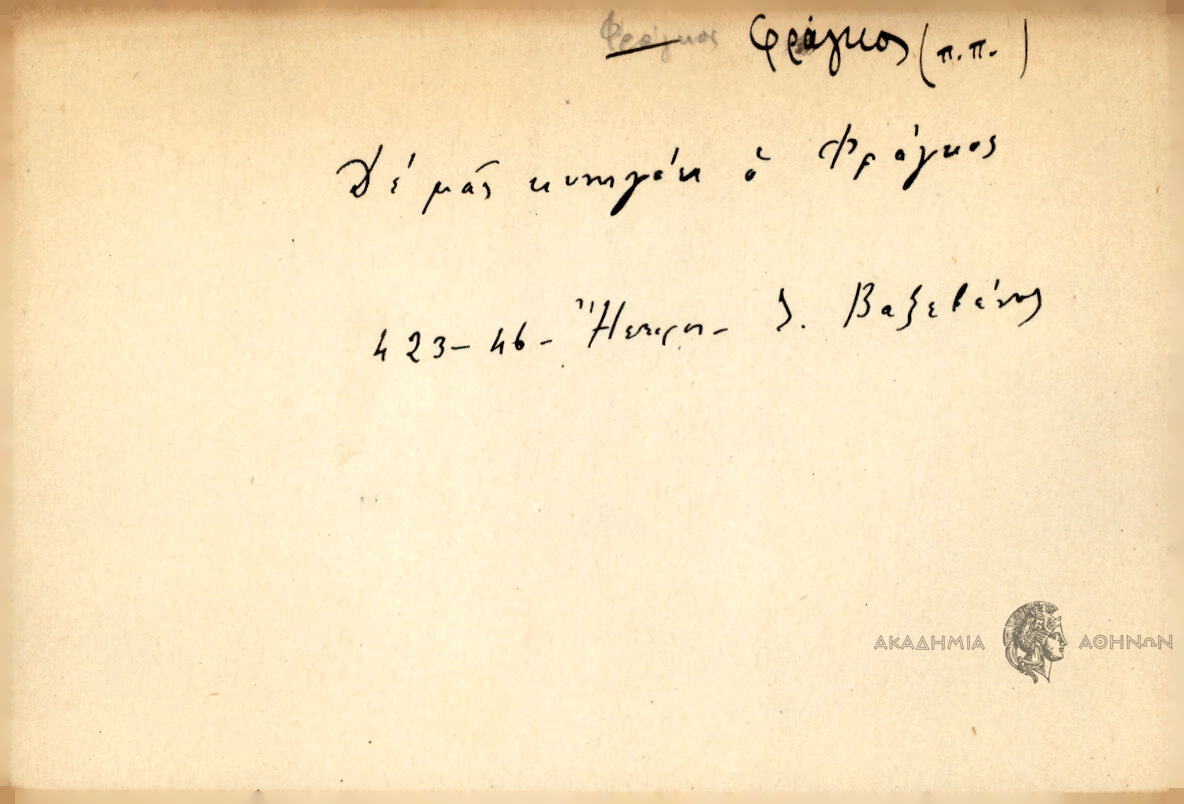 Φράγκος Φράγκος (π.π.)
Δέ μᾶς κυνηγάει ὁ Φράγκος
423-46- Ἤπειρος- Βαξεβάνης
ΑΚΑΔΗΜΙΑ ΑΘΗΝΩΝ